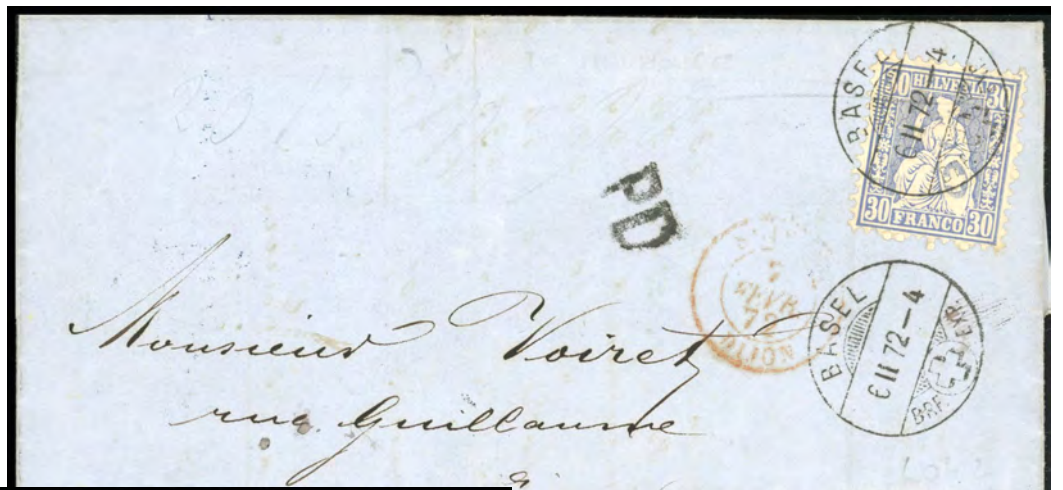 BASEL
6 II 72 – 4
30 HELVETIA 30
30 FRANCO 30
PD
FEVR
72
BASEL
6 II 72 – 4
BRF.
Monsieur Voiret
rue Guillaume
à